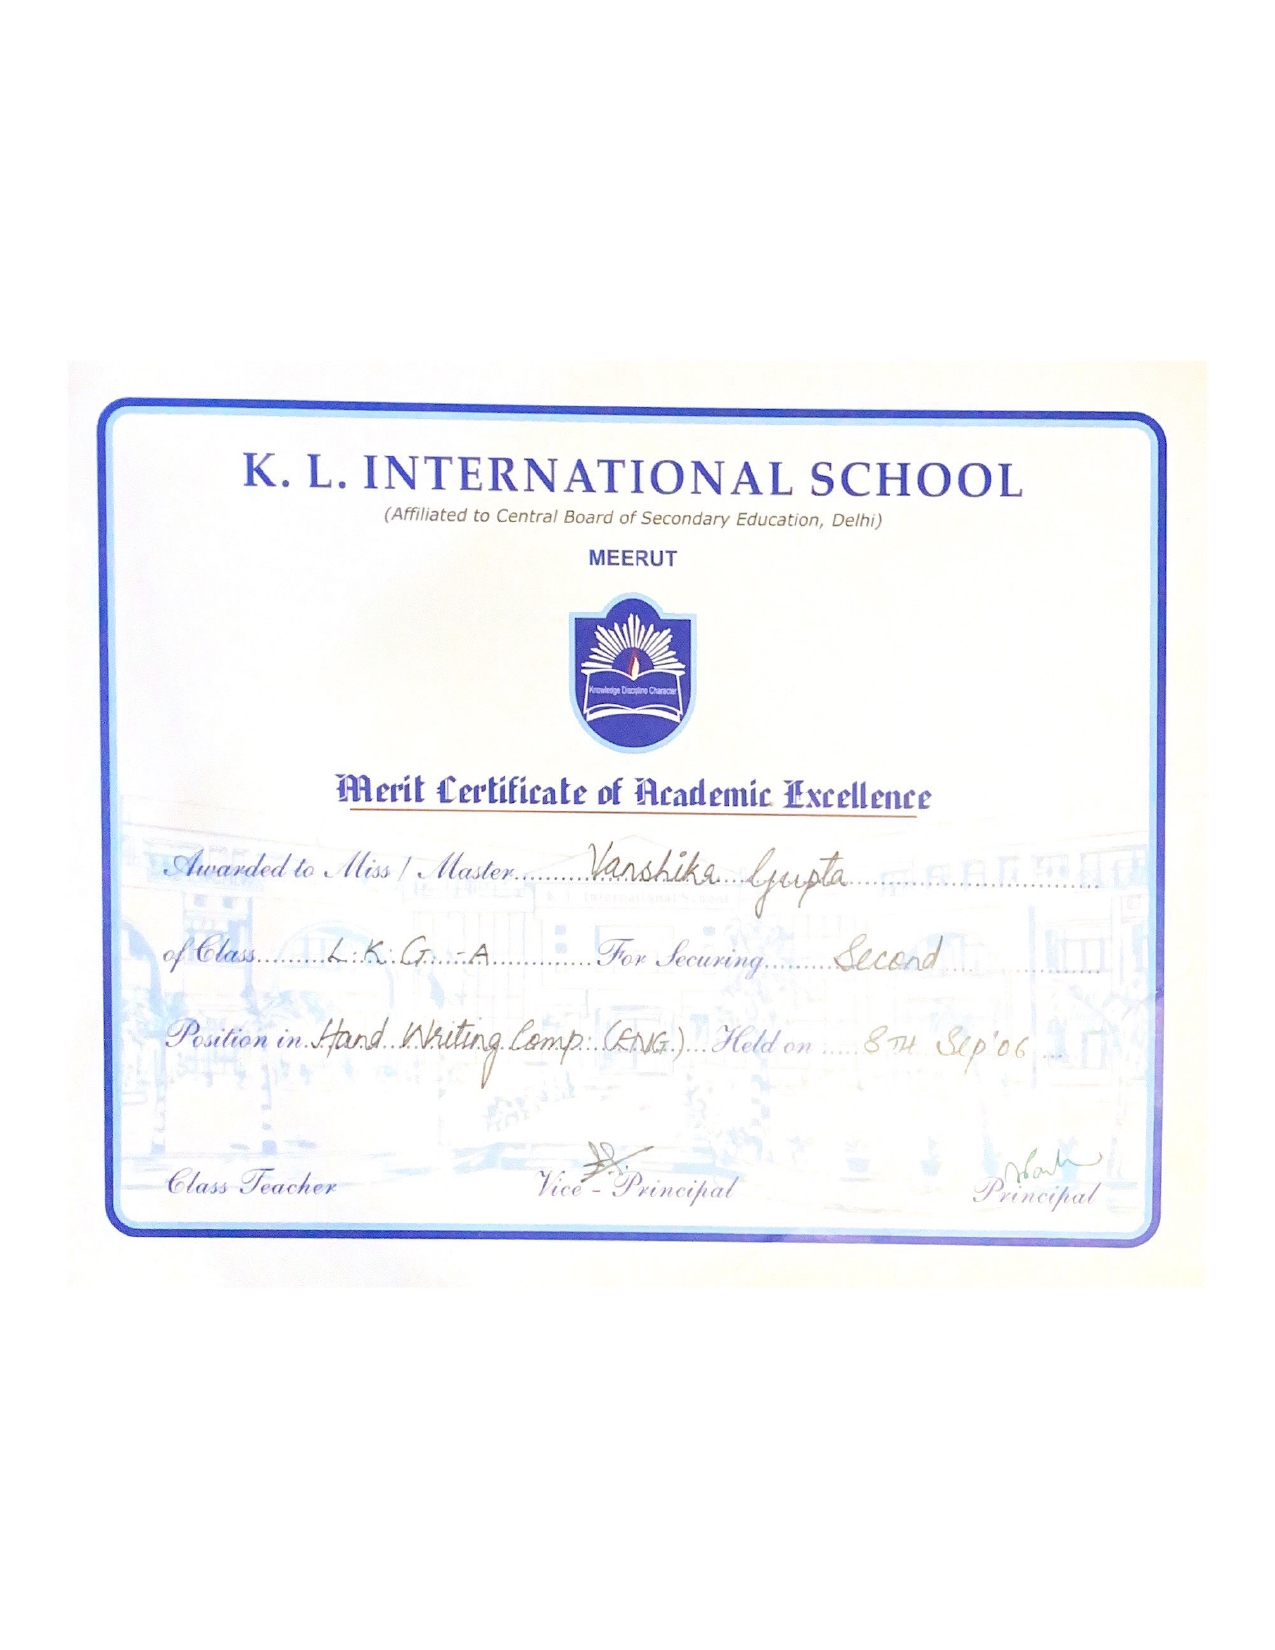 K. L. INTERNATIONAL SCHOOL
(Affiliated to Central Board of Secondary Education, Delhi)
MEERUT
Knowledge Discipline Character
Merit Certificate of Academic Excellence
Awarded to Miss / Master Vanshika Gupta
of Class L.K.G.-A For Securing Second
Position in Hand Writing Comp. (ENG.) Held on 8TH Sep'06
Class Teacher Vice - Principal Principal